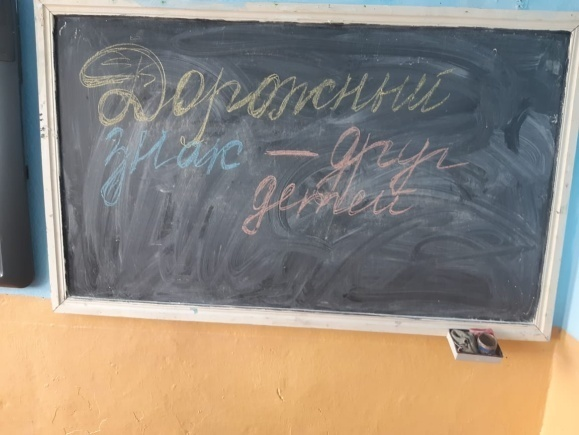 Дорожный
знак – друг
детей